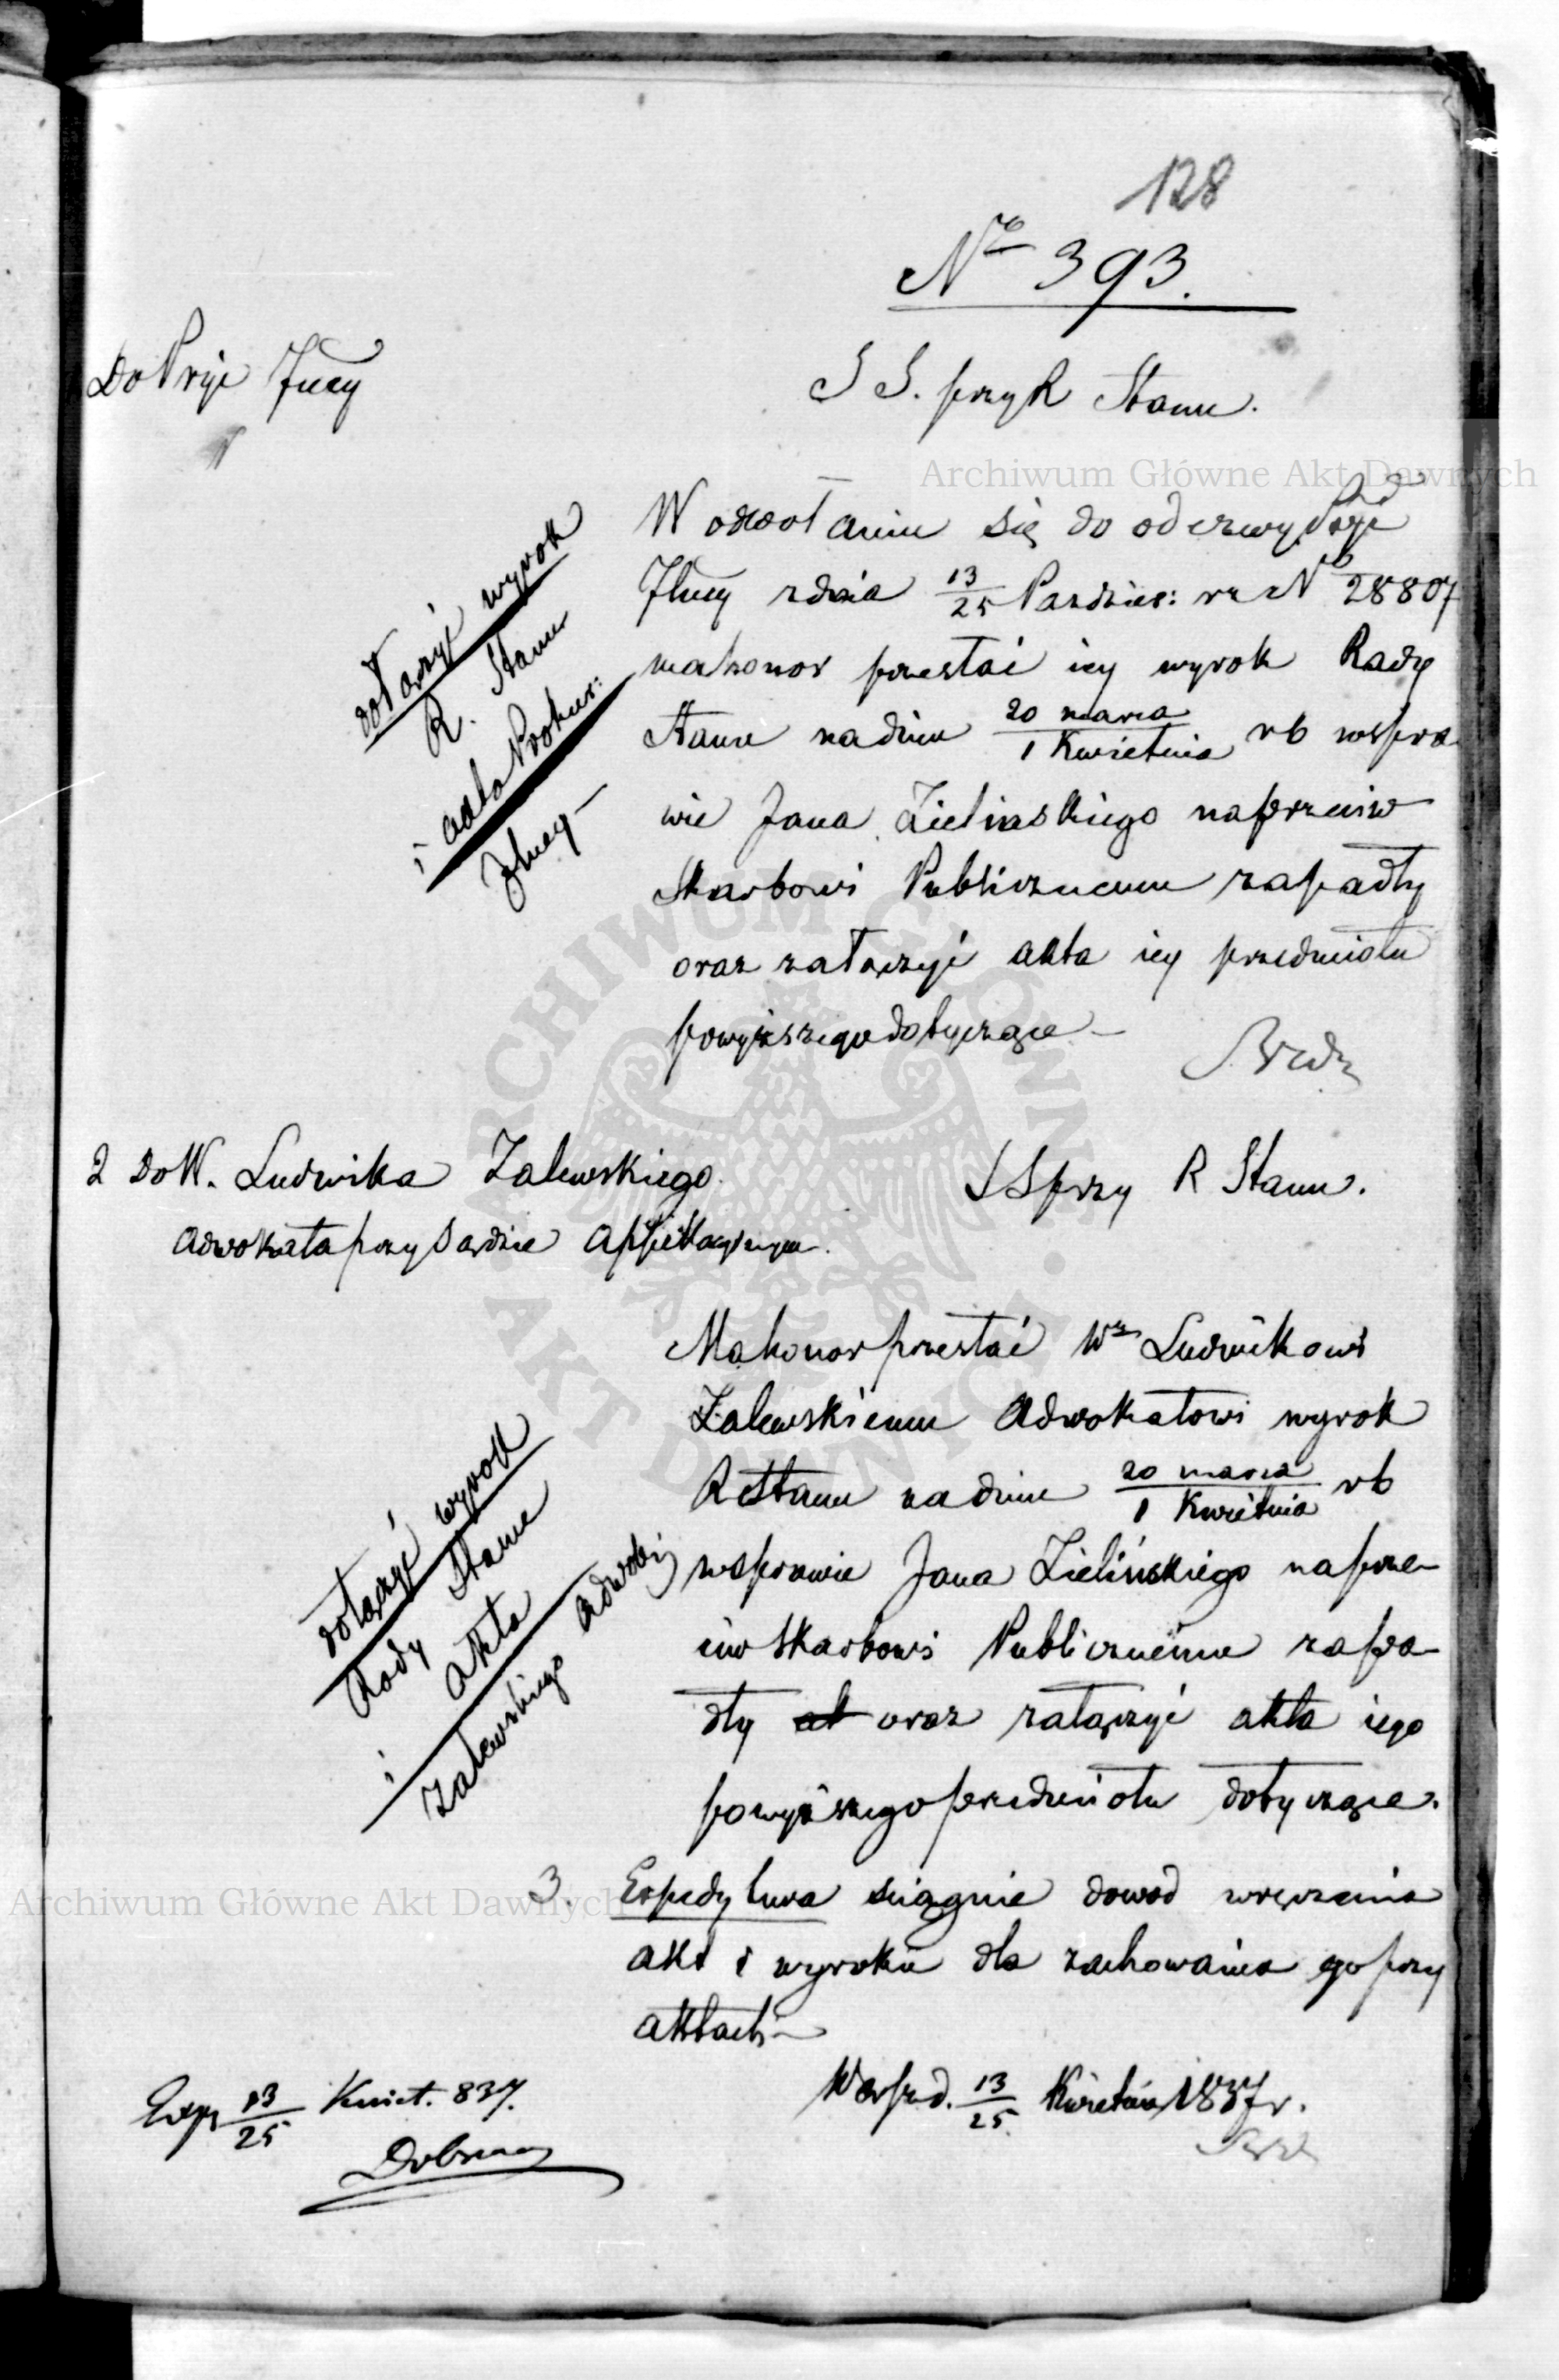 128
No 393.
Do Prrji Jlney
S S. przy R Stanu.
W odwołaniu się do odezwy Prrji
Jlney zdnia 13/25 Pazdzier: rz No 28807
ma honor przesłać iey wyrok Rady
Stanu na dniu 20 marca / 1 Kwietnia rb w spra
wie Jana Zielinskiego naprzeciw
Skarbowi Publicznemu zapadły
oraz załączyć akta iey przedmiotu
powyższego dotyczące –
dołączyć wyrok
R. Stanu
i akta Prokur:
Jlney –
2 Do W. Ludwika Zalewskiego
Adwokata przy Sądzie Appellacyinym.
S S przy R Stanu.
Ma honor przesłać Wu Ludwikowi
Zalewskiemu Adwokatowi wyrok
R Stanu na dniu 20 marca / 1 Kwietnia rb
w sprawie Jana Zielińskiego naprze-
ciw Skarbowi Publicznemu zapa-
dły ak oraz załączyć akta iego
powyższego przedmiotu dotyczące.
dołączyć wyrok
Rady Stanu
i akta Adwok:
Zalewskiego
3. Expedytura sciągnie dowod wręczenia
akt i wyroku dla zachowania go przy
aktach –
Warsz d. 13/25 Kwietnia 1837 r.
Exp 13/25 Kwiet. 837.
Archiwum Główne Akt Dawnych
Archiwum Główne Akt Dawnych
ARCHIWUM GŁÓWNE AKT DAWNYCH